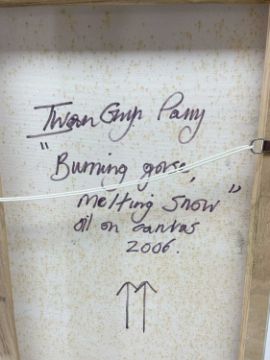 Iwan Gwyn Parry
"Burning gorse,
melting snow"
oil on canvas
2006.